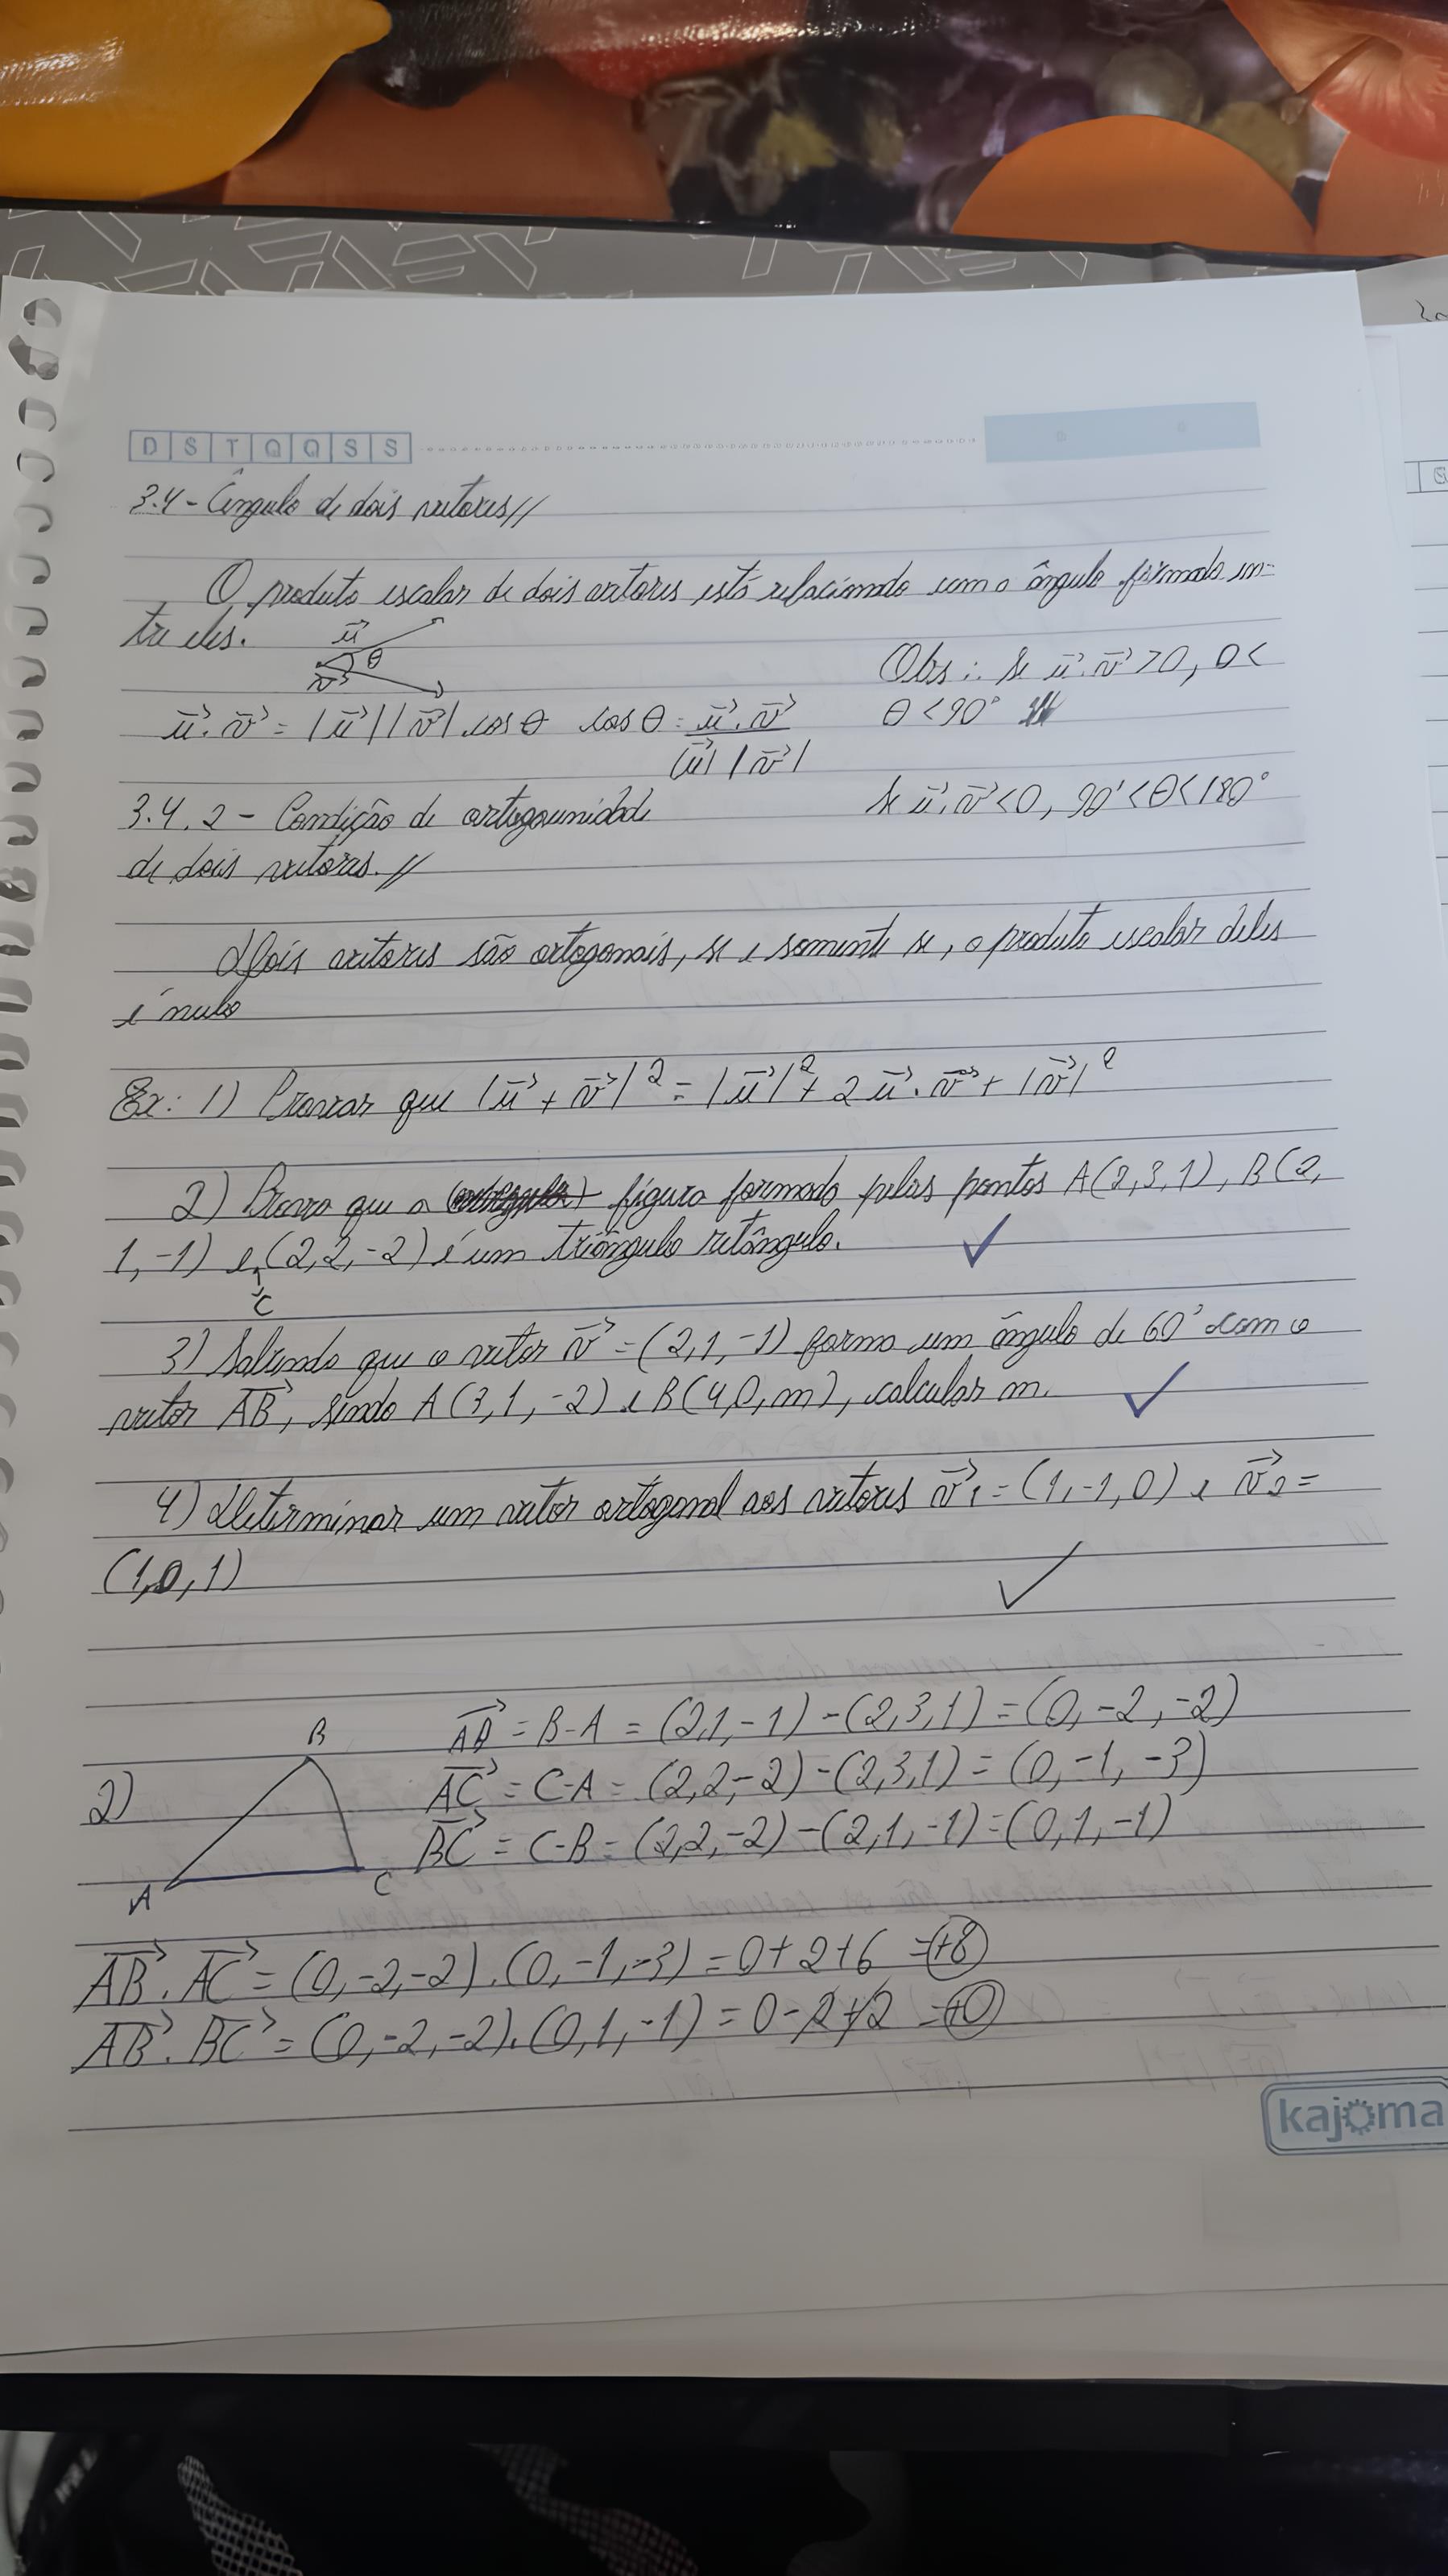 D S T Q Q S S
3.4 - Ângulo de dois vetores//
O produto escalar de dois vetores está relacionado com o ângulo formado en-
tre eles.
u⃗
θ
v⃗
Obs.: Se u⃗.v⃗ > 0, 0 <
θ < 90°
u⃗.v⃗ = |u⃗||v⃗|.cos θ cos θ = u⃗.v⃗
|u⃗| |v⃗|
Se u⃗.v⃗ < 0, 90° < θ < 180°
3.4.2 - Condição de ortogounidade
de dois vetores.//
Dois vetores são ortogonais, se e somente se, o produto escalar deles
é nulo
Ex: 1) Provar que |u⃗ + v⃗|² = |u⃗|² + 2u⃗.v⃗ + |v⃗|²
2) Prova que a figura formada pelas pontos A(2,3,1), B(2,
1,-1) e (2,2,-2) é um triângulo retângulo. ✓
C
3) Sabendo que o vetor v⃗ = (2,1,-1) forma um ângulo de 60° com o
vetor AB⃗, sendo A(3,1,-2) e B(4,0,m), calcular m. ✓
4) Determinar um vetor ortogonal aos vetores v⃗₁ = (1,-1,0) e v⃗₂ =
(1,0,1) ✓
2)
B
A
C
AB⃗ = B-A = (2,1,-1)-(2,3,1) = (0,-2,-2)
AC⃗ = C-A = (2,2,-2)-(2,3,1) = (0,-1,-3)
BC⃗ = C-B = (2,2,-2)-(2,1,-1) = (0,1,-1)
AB⃗.AC⃗ = (0,-2,-2).(0,-1,-3) = 0+2+6 = +8
AB⃗.BC⃗ = (0,-2,-2).(0,1,-1) = 0-2+2 = +0
kajoma